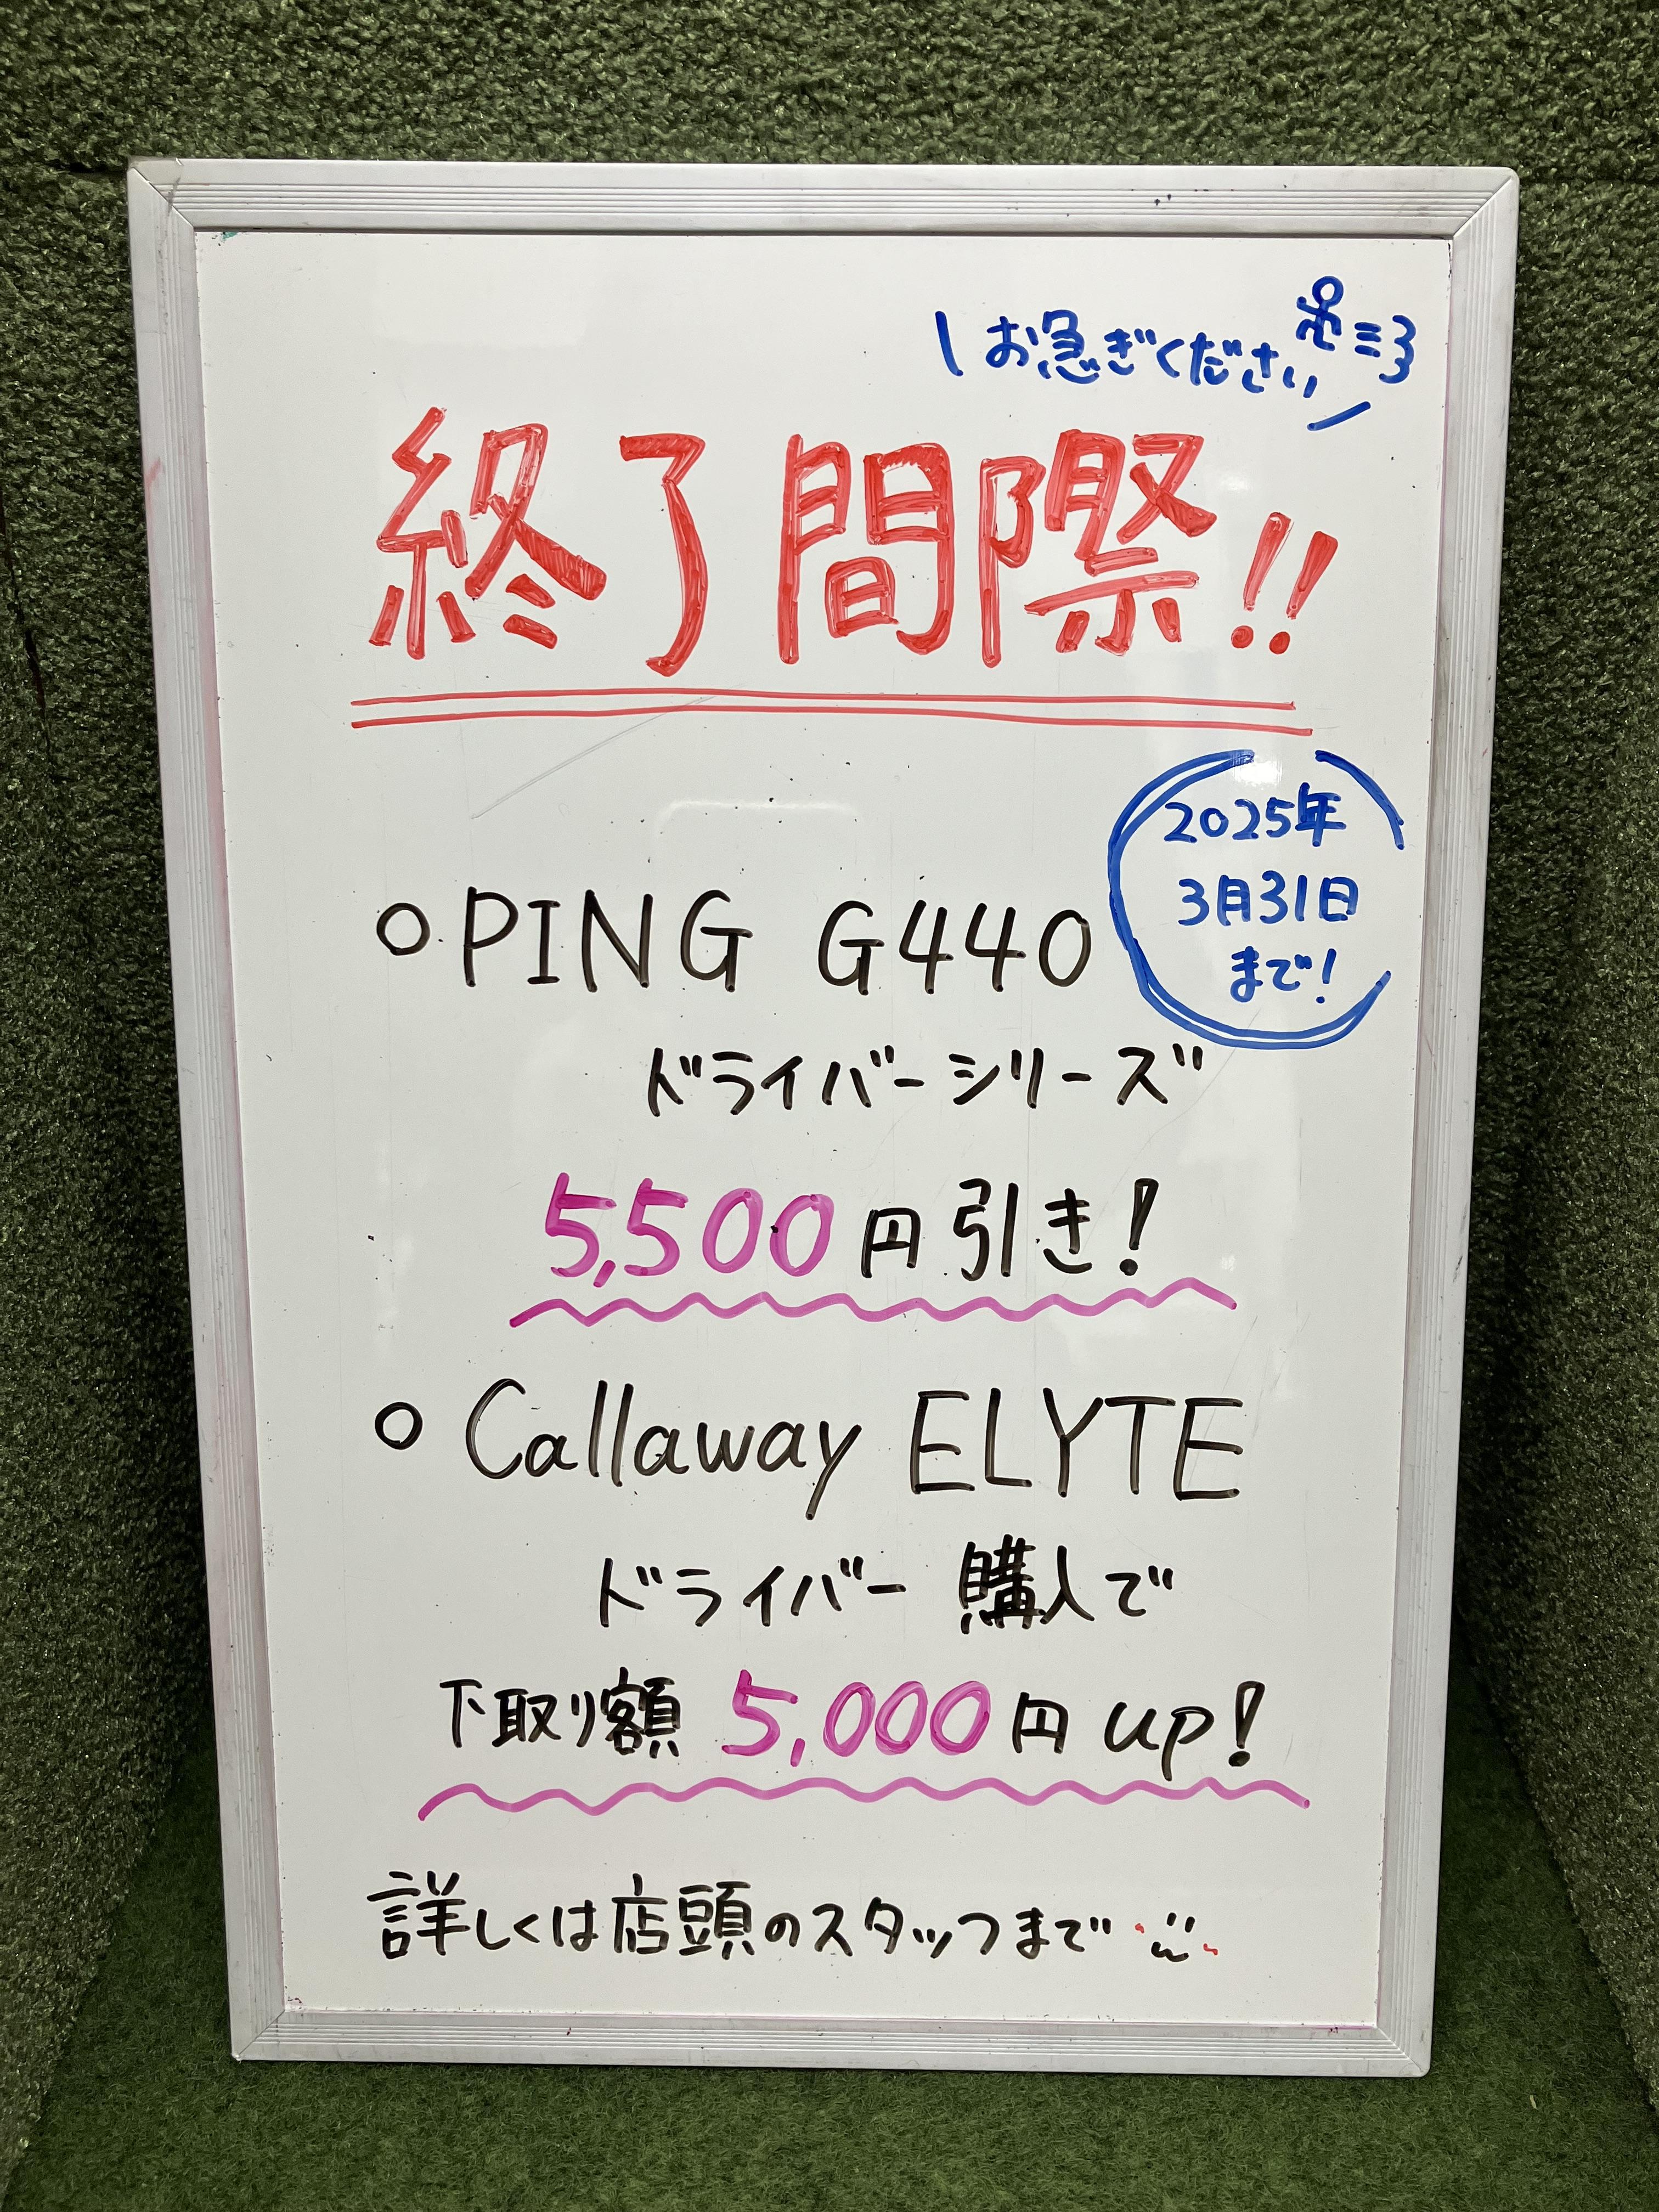 \ お急ぎください /
終了間際!!
2025年
3月31日
まで!
○ PING G440
ドライバーシリーズ
5,500円引き!
○ Callaway ELYTE
ドライバー購入で
下取り額 5,000円 up!
詳しくは店頭のスタッフまで